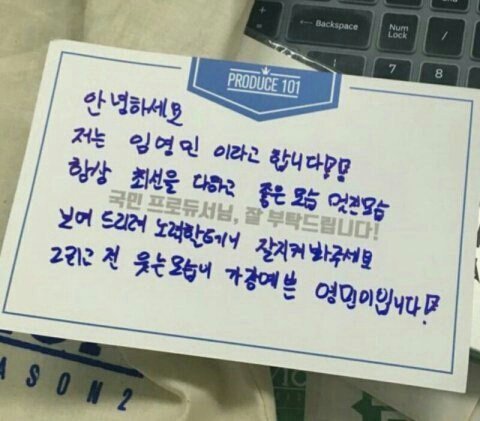 Backspace
Num Lock
7
8
PRODUCE 101
안녕하세요
저는 임영민 이라고 합니다!!
항상 최선을 다하고 좋은모습 멋진모습
국민 프로듀서님, 잘 부탁드립니다!
보여 드리려 노력할테니 잘지켜봐주세요
그리고 전 웃는모습이 가장예쁜 영민이입니다!
ASON 2